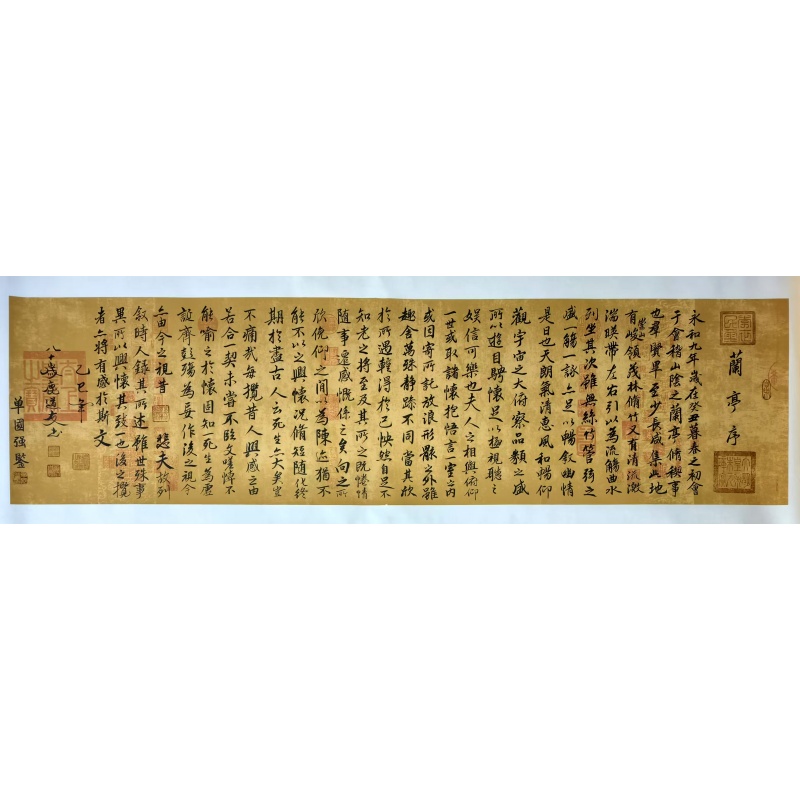 蘭亭序
永和九年歲在癸丑暮春之初會
于會稽山陰之蘭亭脩禊事
也羣賢畢至少長咸集此地
崇山
有峻領茂林脩竹又有清流激
湍暎帶左右引以為流觴曲水
列坐其次雖無絲竹管弦之
盛一觴一詠亦足以暢敘幽情
是日也天朗氣清惠風和暢仰
觀宇宙之大俯察品類之盛
所以遊目騁懷足以極視聽之
娛信可樂也夫人之相與俯仰
一世或取諸懷抱悟言一室之內
或因寄所託放浪形骸之外雖
趣舍萬殊靜躁不同當其欣
於所遇暫得於己怏然自足不
知老之將至及其所之既惓情
隨事遷感慨係之矣向之所
欣俛仰之間以為陳迹猶不
能不以之興懷況脩短隨化終
期於盡古人云死生亦大矣豈
不痛哉每攬昔人興感之由
若合一契未嘗不臨文嗟悼不
能喻之於懷固知死生為虛
誕齊彭殤為妄作後之視今
亦由今之視昔悲夫故列
敘時人錄其所述雖世殊事
異所以興懷其致一也後之攬
者亦將有感於斯文
乙巳年
八十歲
單國强鑒